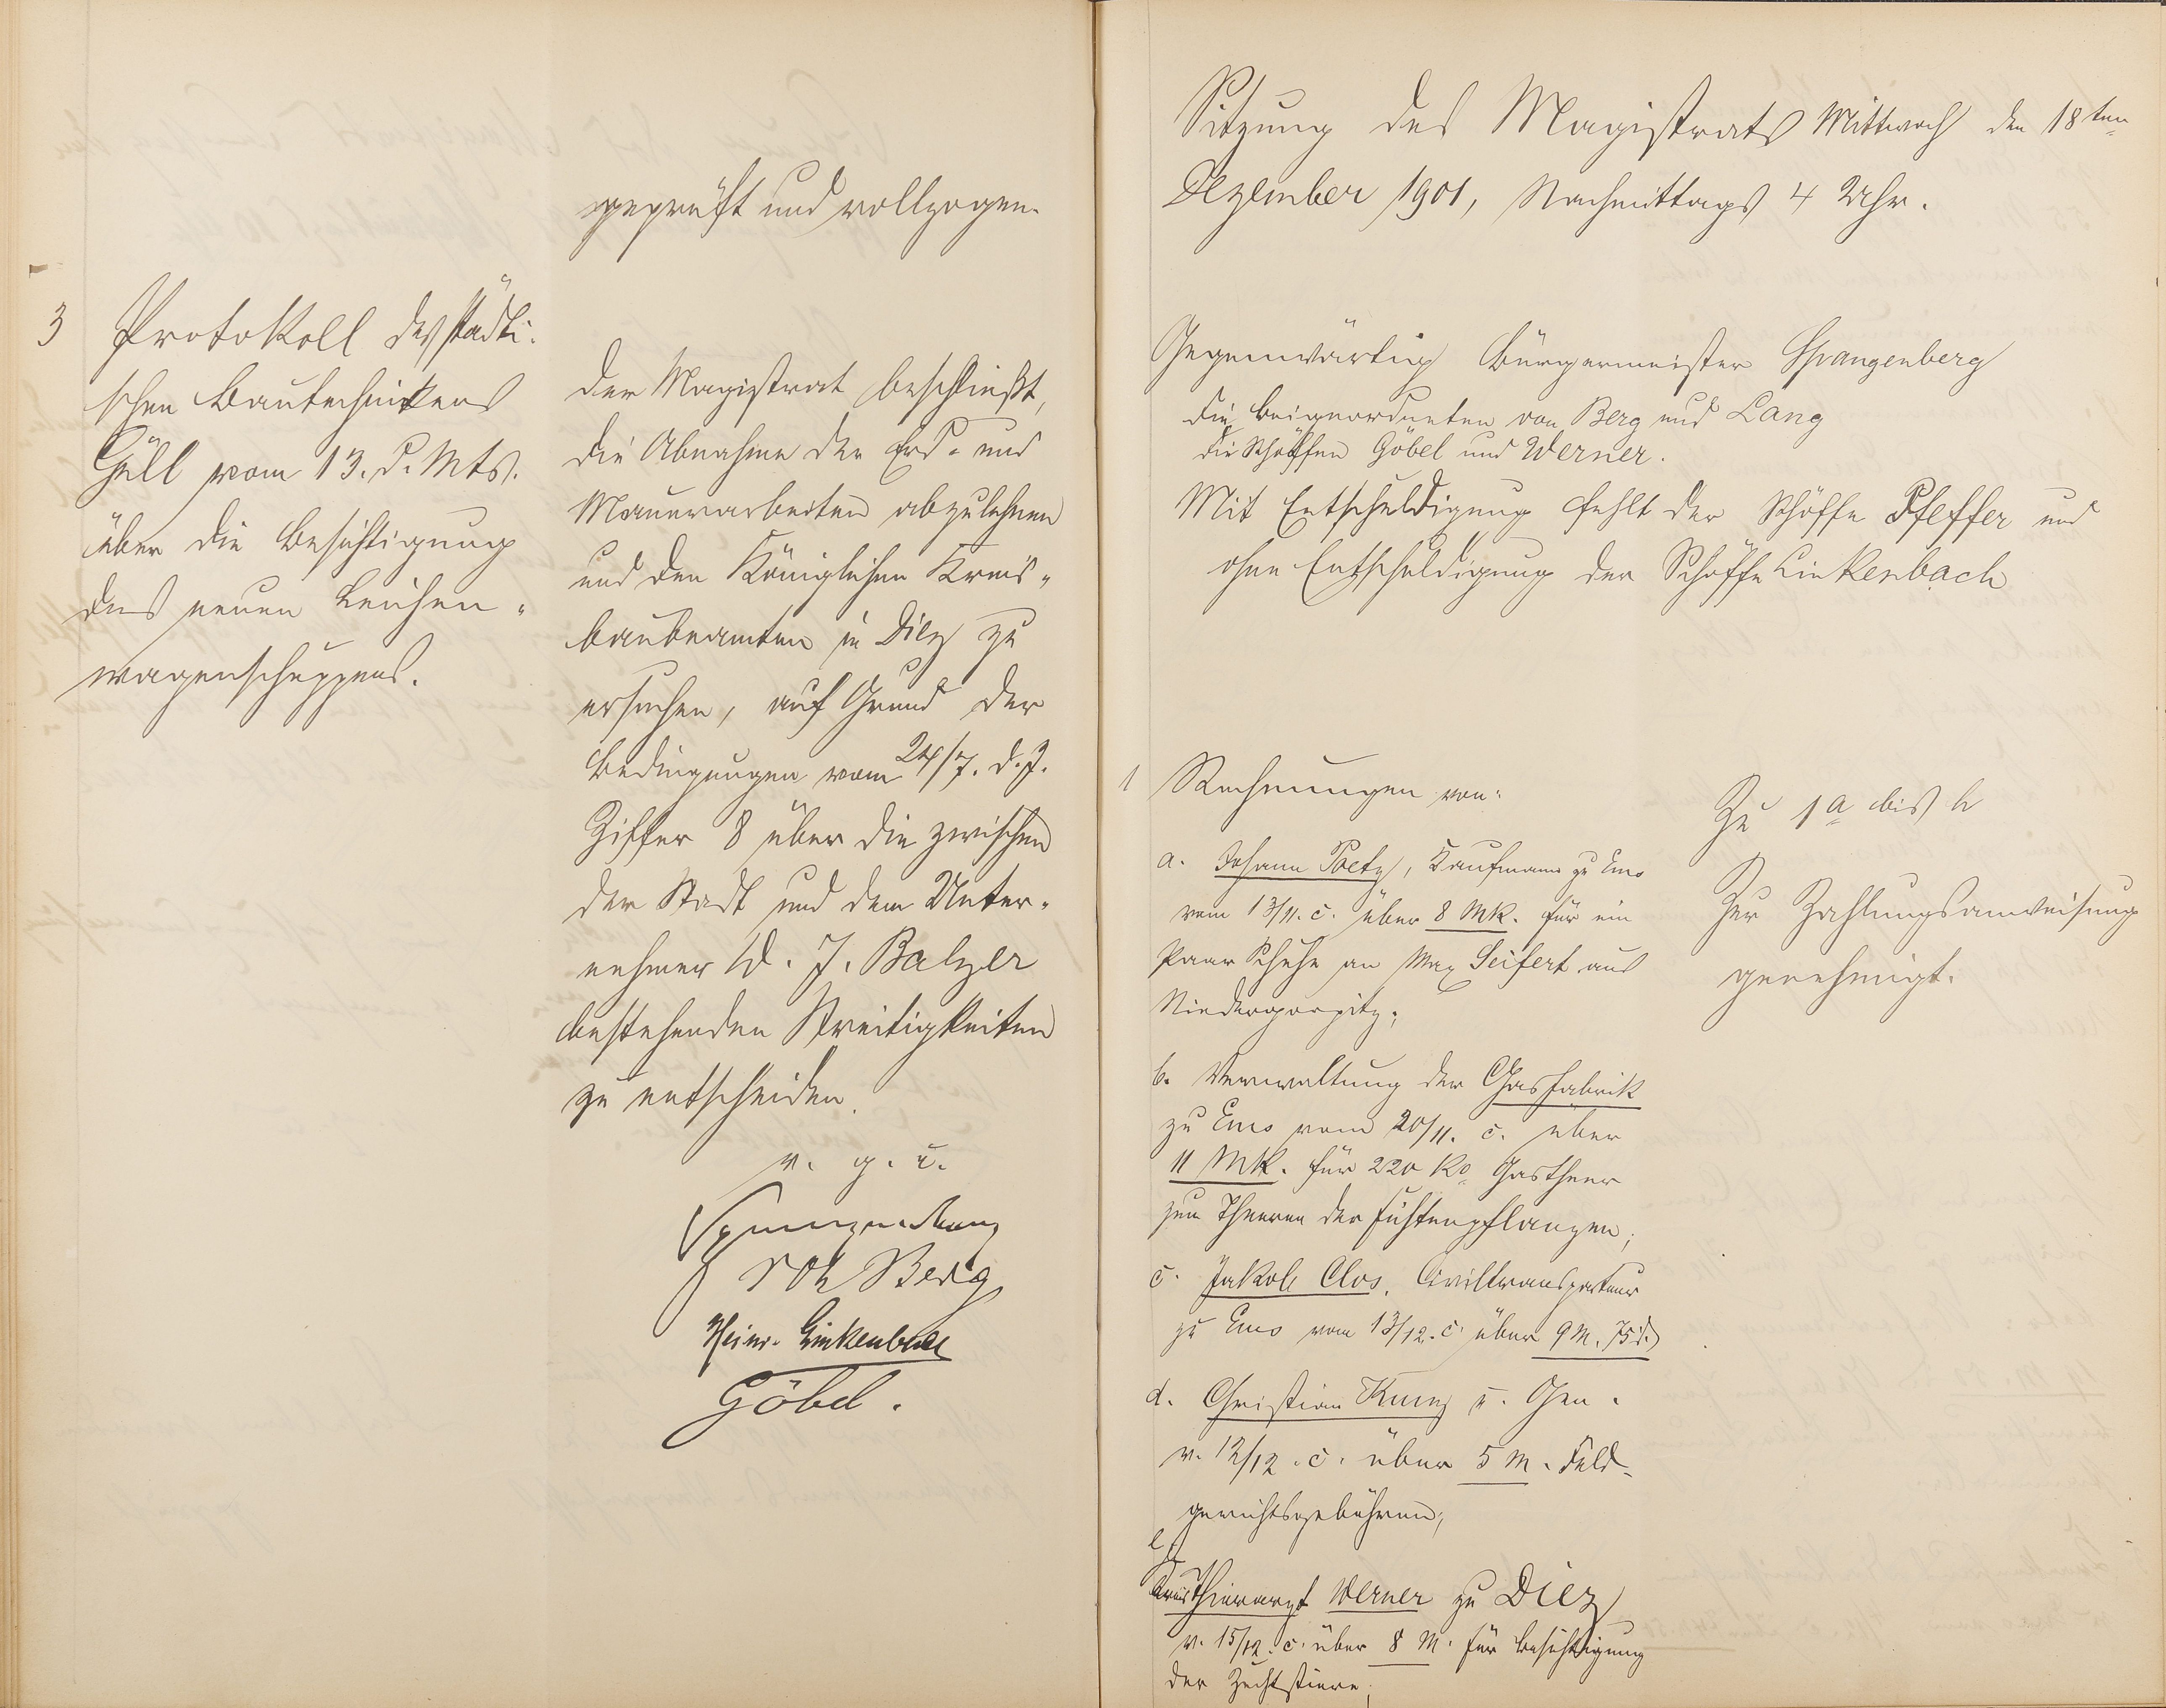 geprüft und vollzogen.
3 Protokoll des städti-
schen Bautechnikers
Güll vom 13. d. Mts.
über die Besichtigung
des neuen Leichen-
wagenschuppens.
Der Magistrat beschließt,
die Abnahme der Erd- und
Maurerarbeiten abzulehnen
und den Königlichen Kreis-
baubeamten in Diez zu
ersuchen, auf Grund der
Bedingungen vom 24/7. d. J.
Ziffer 8 über die zwischen
der Stadt und dem Unter-
nehmer W. J. Balzer
bestehenden Streitigkeiten
zu entscheiden.
v. g. u.
Spangenberg
Berg
Heinr. Linkenbach
Göbel.
Sitzung des Magistrats Mittwoch den 18ten
Dezember 1901, Nachmittags 4 Uhr.
Gegenwärtig Bürgermeister Spangenberg
die Beigeordneten von Berg und Lang
die Schöffen Göbel und Werner.
Mit Entschuldigung fehlt der Schöffe Pfeffer und
ohne Entschuldigung der Schöffe Linkenbach
1 Rechnungen von:
a. Johann Poetz, Kaufmann zu Ems
vom 13/11. c. über 8 Mk. für ein
Paar Schuhe an Max Seifert aus
b. Verwaltung der Gasfabrik
zu Ems vom 20/11. c. über
11 Mk. für 220 Ko Gastheer
zum Theeren der Fichtenpflanzen;
c. Jakob Clos, Civiltransporteur
zu Ems vom 13/12. c. über 9 M. 75 d.
d. Christian Kunz u. Gen.
v. 12/12. c. über 5 M. Feld-
gerichtsgebühren;
e,
Kreisthierarzt Werner zu Diez
v. 15/12. c. über 8 M. für Besichtigung
der Zuchtstiere;
Zu 1a bis h
Zur Zahlungsanweisung
genehmigt.